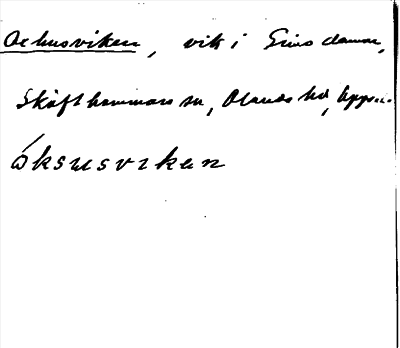 Oehusviken, vik i Gimodammen,
Skäfthammars sn, Olands hd, Upps.
óksusviken